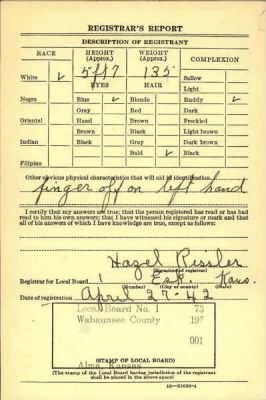 REGISTRAR'S REPORT
DESCRIPTION OF REGISTRANT
RACE HEIGHT (Approx.) WEIGHT (Approx.) COMPLEXION
White ✓ 5ft7 135 Sallow
EYES HAIR Light
Negro Blue ✓ Blonde Ruddy ✓
Gray Red Dark
Oriental Hazel Brown Freckled
Brown Black Light brown
Indian Black Gray Dark brown
Bald ✓ Black
Filipino
Other obvious physical characteristics that will aid in identification
finger off on left hand
I certify that my answers are true; that the person registered has read or has had read to him his own answers; that I have witnessed his signature or mark and that all of his answers of which I have knowledge are true, except as follows:
Hazel Ressler
(Signature of registrar)
Registrar for Local Board 1 Kans.
(Number) (City or county) (State)
Date of registration April 27-42
Local Board No. 1 73
Wabaunsee County 197
001
Alma, Kansas
(STAMP OF LOCAL BOARD)
(The stamp of the Local Board having jurisdiction of the registrant shall be placed in the above space)